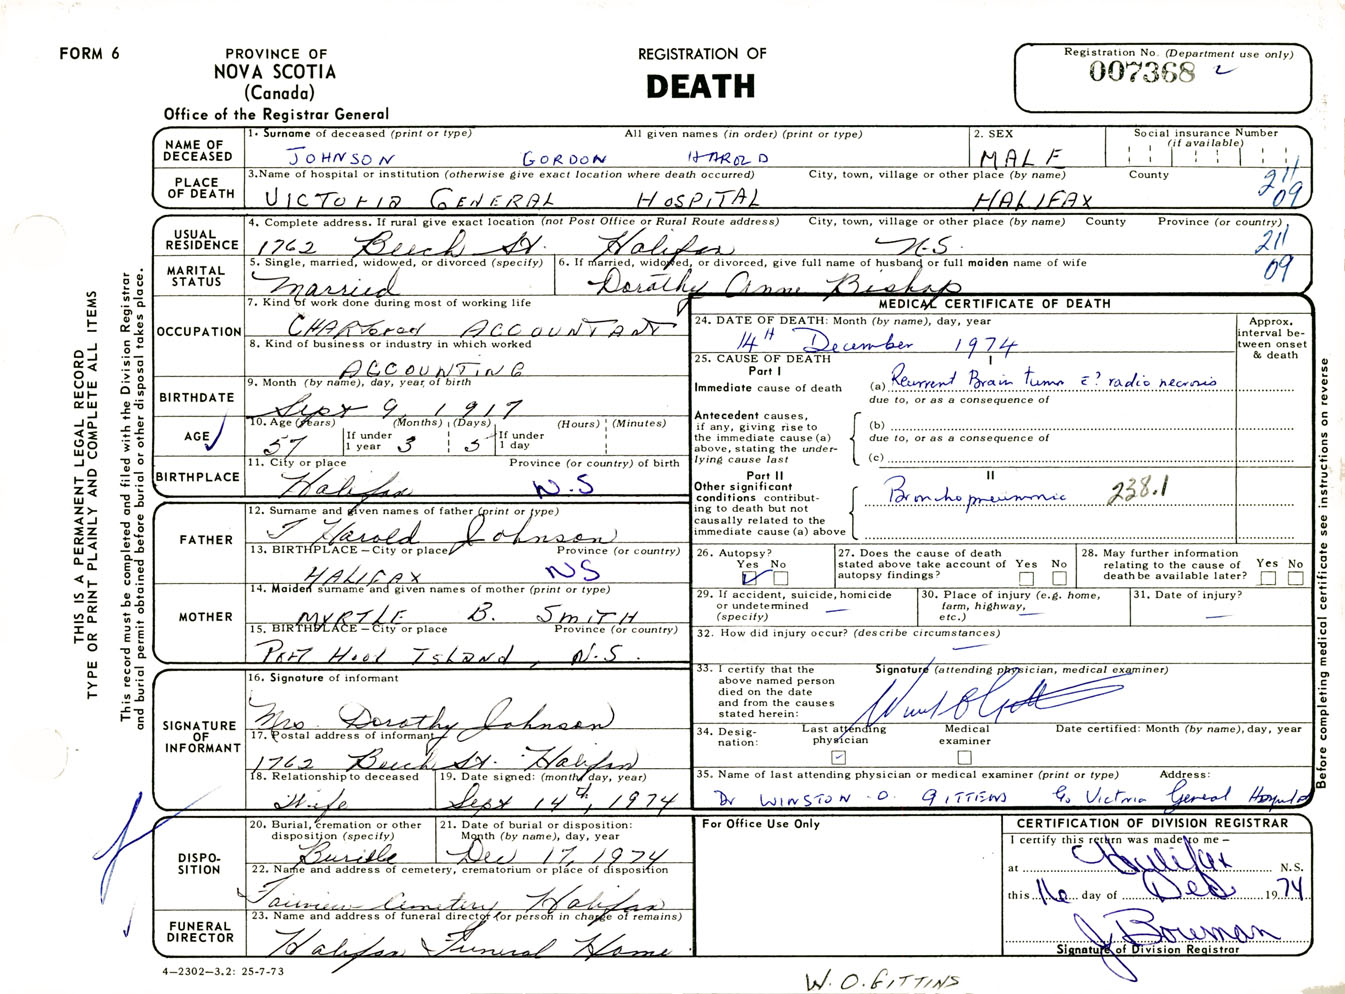 FORM 6
PROVINCE OF
NOVA SCOTIA
(Canada)
Office of the Registrar General
REGISTRATION OF
DEATH
Registration No. (Department use only)
007368 2
THIS IS A PERMANENT LEGAL RECORD
TYPE OR PRINT PLAINLY AND COMPLETE ALL ITEMS
This record must be completed and filed with the Division Registrar
and burial permit obtained before burial or other disposal takes place.
NAME OF
DECEASED
1. Surname of deceased (print or type) All given names (in order) (print or type)
JOHNSON GORDON HAROLD
2. SEX
MALE
Social insurance Number
(if available)
PLACE
OF DEATH
3.Name of hospital or institution (otherwise give exact location where death occurred) City, town, village or other place (by name) County
VICTORIA GENERAL HOSPITAL HALIFAX
211
09
USUAL
RESIDENCE
4. Complete address. If rural give exact location (not Post Office or Rural Route address) City, town, village or other place (by name) County Province (or country)
1762 Beech St. Halifax N.S.
211
09
MARITAL
STATUS
5. Single, married, widowed, or divorced (specify)
Married
6. If married, widowed, or divorced, give full name of husband or full maiden name of wife
Dorothy Anne Bishop
OCCUPATION
7. Kind of work done during most of working life
CHARTERED ACCOUNTANT
8. Kind of business or industry in which worked
ACCOUNTING
BIRTHDATE
9. Month (by name), day, year of birth
Sept 9, 1917
AGE
10. Age (Years) (Months) (Days) (Hours) (Minutes)
57 If under 1 year 3 5 If under 1 day
BIRTHPLACE
11. City or place Province (or country) of birth
Halifax N.S
FATHER
12. Surname and given names of father (print or type)
T Harold Johnson
13. BIRTHPLACE – City or place Province (or country)
HALIFAX NS
MOTHER
14. Maiden surname and given names of mother (print or type)
MYRTLE B. SMITH
15. BIRTHPLACE – City or place Province (or country)
Port Hood Island, N.S.
SIGNATURE
OF
INFORMANT
16. Signature of informant
Mrs. Dorothy Johnson
17. Postal address of informant
1762 Beech St. Halifax
18. Relationship to deceased
Wife
19. Date signed: (month, day, year)
Sept 14th, 1974
DISPO-
SITION
20. Burial, cremation or other
disposition (specify)
21. Date of burial or disposition:
Month (by name), day, year
Dec 17, 1974
22. Name and address of cemetery, crematorium or place of disposition
Fairview Cemetery Halifax
FUNERAL
DIRECTOR
23. Name and address of funeral director (or person in charge of remains)
Halifax Funeral Home
4–2302–3.2: 25-7-73
MEDICAL CERTIFICATE OF DEATH
24. DATE OF DEATH: Month (by name), day, year
14th December 1974
Approx.
interval be-
tween onset
& death
25. CAUSE OF DEATH
Part I
I
Immediate cause of death
(a) Recurrent Brain tumor c̄ ? radio necrosis
due to, or as a consequence of
Antecedent causes,
if any, giving rise to
the immediate cause (a)
above, stating the under-
lying cause last
(b)
due to, or as a consequence of
(c)
Part II
II
Other significant
conditions contribut-
ing to death but not
causally related to the
immediate cause (a) above
Bronchopneumonia 238.1
26. Autopsy?
Yes No
27. Does the cause of death
stated above take account of
autopsy findings?
Yes No
28. May further information
relating to the cause of
death be available later?
Yes No
29. If accident, suicide, homicide
or undetermined —
(specify)
30. Place of injury (e.g. home,
farm, highway,
etc.) —
31. Date of injury?
—
32. How did injury occur? (describe circumstances)
—
33. I certify that the
above named person
died on the date
and from the causes
stated herein:
Signature (attending physician, medical examiner)
34. Desig-
nation:
Last attending
physician
Medical
examiner
Date certified: Month (by name), day, year
35. Name of last attending physician or medical examiner (print or type) Address:
Dr WINSTON O. GITTENS c/o Victoria General Hospital
Before completing medical certificate see instructions on reverse
For Office Use Only
CERTIFICATION OF DIVISION REGISTRAR
I certify this return was made to me –
at Halifax N.S.
this 16 day of Dec 1974
J Boreman
Signature of Division Registrar
W. O. GITTINS